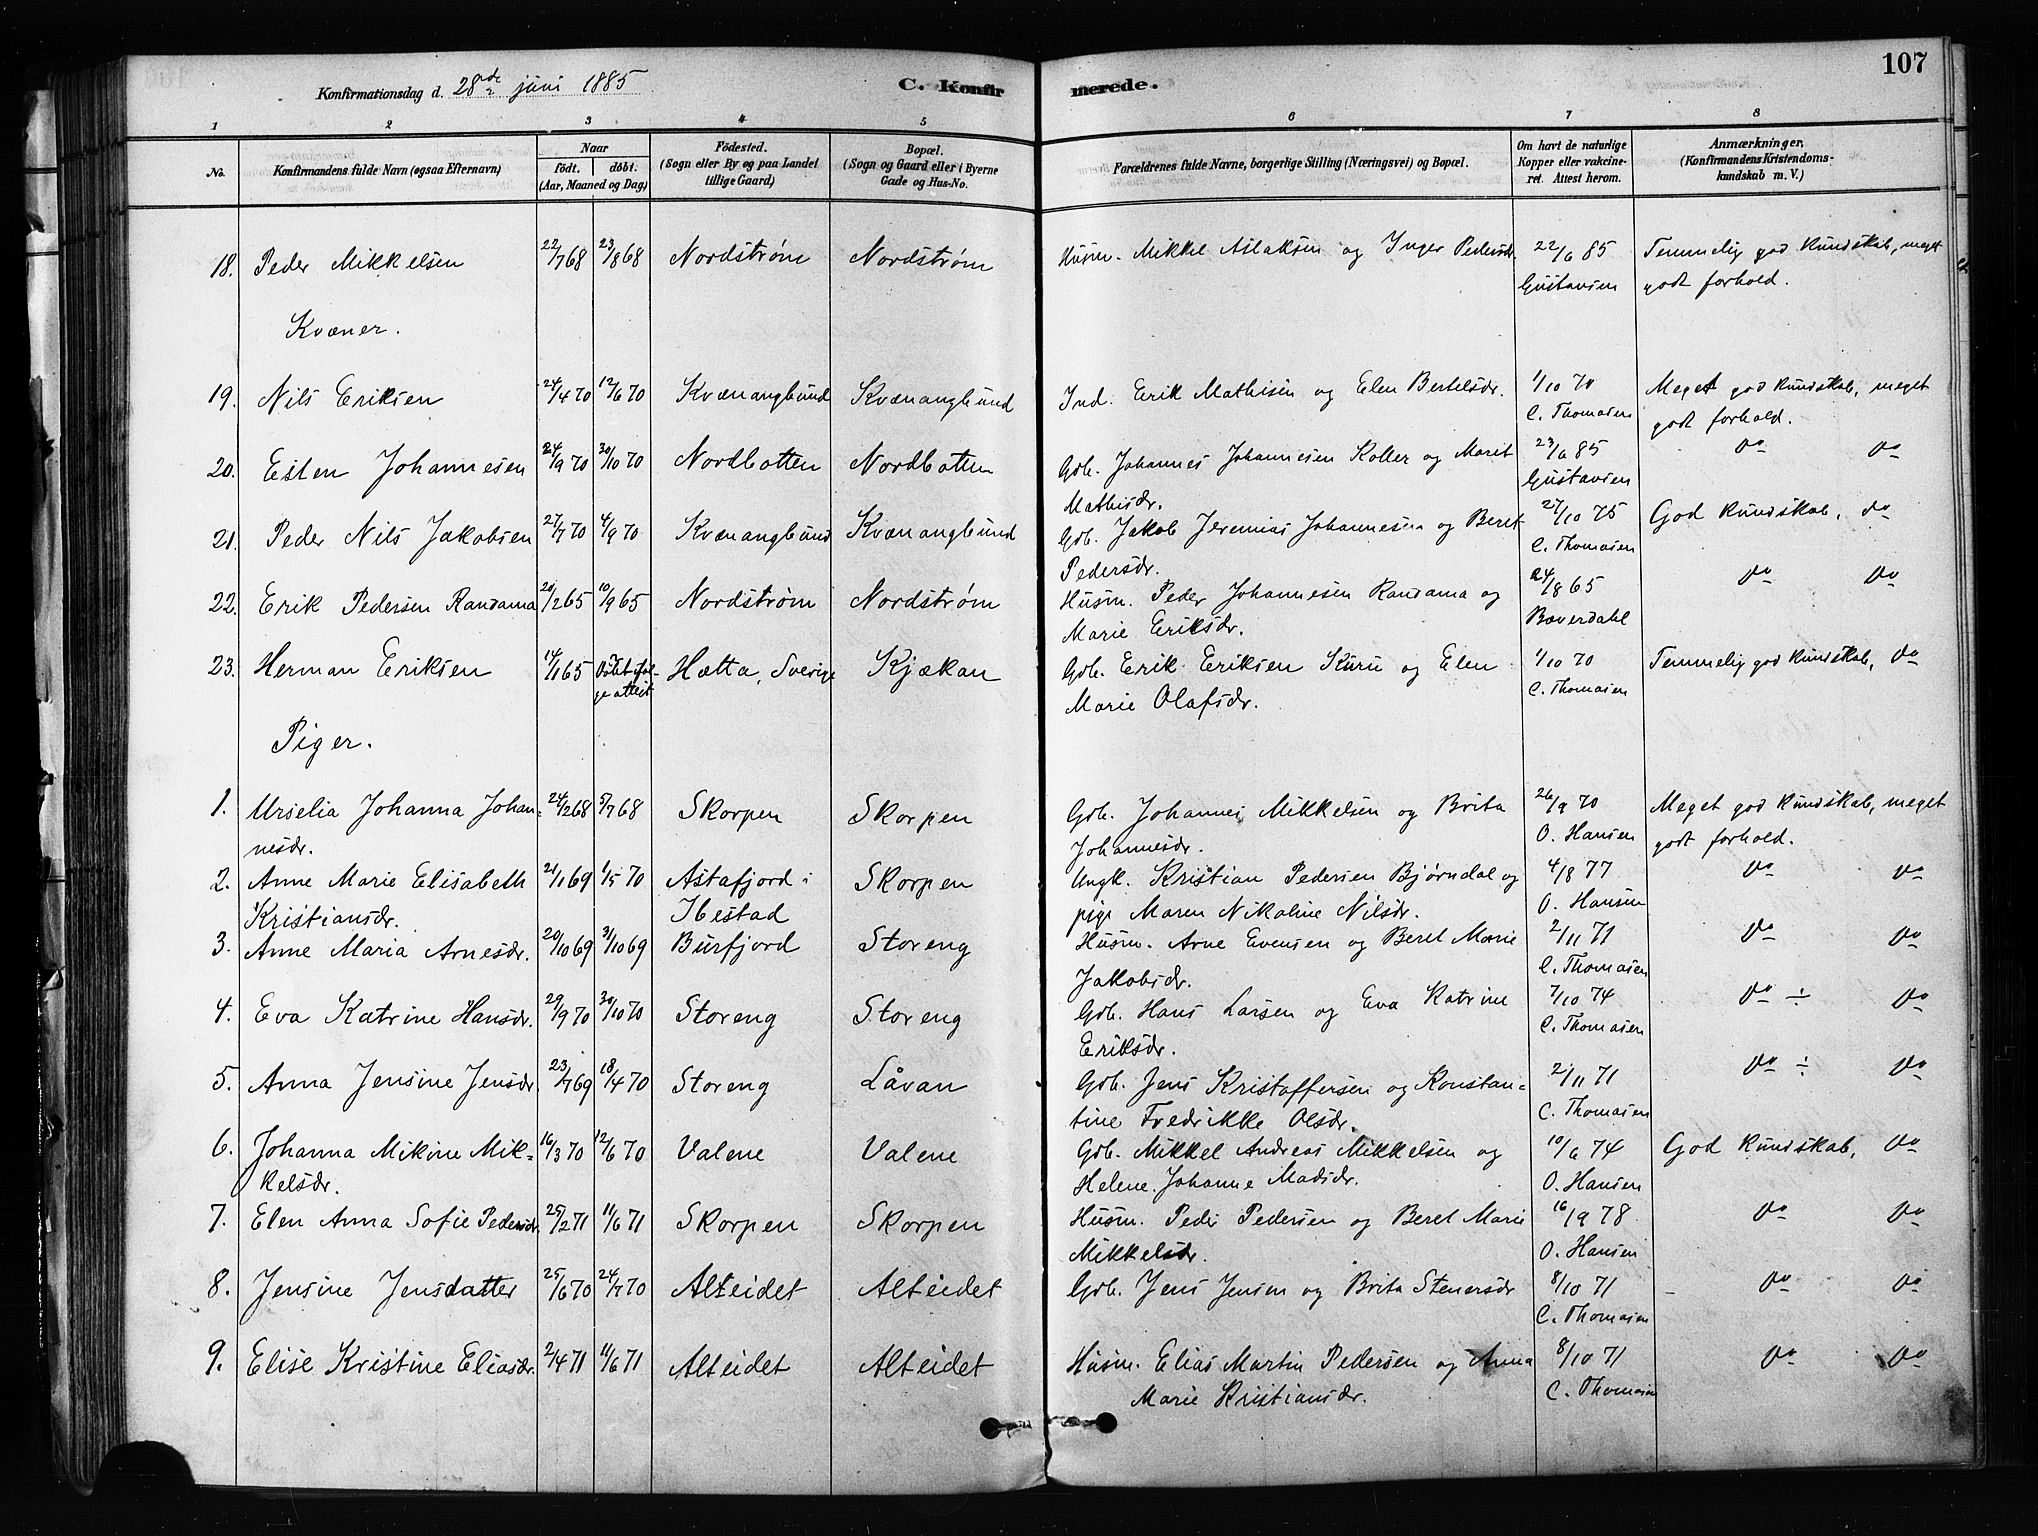 107
Konfirmationsdag d. 28de juni 1885
C. Konfirmerede.
1 2 3 4 5 6 7 8
No. Konfirmandens fulde Navn (ogsaa Efternavn) Naar Født. døbt. (Aar, Maaned og Dag) Fødested. (Sogn eller By og paa Landet tillige Gaard) Bopæl. (Sogn og Gaard eller i Byerne Gade og Hus-No. Forældrenes fulde Navne, borgerlige Stilling (Næringsvei) og Bopæl. Om havt de naturlige Kopper eller vakcineret. Attest herom. Anmærkninger, (Konfirmandens Kristendomskundskab m. V.)
18. Peder Mikkelsen 22/7 68 23/8 68 Nordstrøm Nordstrøm Husm. Mikkel Aslaksen og Inger Pedersdr. 22/6 85 Temmelig god kundskab, meget
Gustavsen godt forhold.
Kvæner.
19. Nils Eriksen 24/4 70 12/6 70 Kvænangbund Kvænangbund Ind. Erik Mathisen og Elen Bertelsdr. 1/10 70 Meget god kundskab, meget
C. Thomasen godt forhold.
20. Esten Johannesen 24/9 70 30/10 70 Nordbotten Nordbotten Gdb. Johannes Johannesen Koller og Marit 23/6 85 do do
Mathisdr. Gustavsen
21. Peder Nils Jakobsen 27/7 70 4/9 70 Kvænangbund Kvænangbund Gdb. Jakob Jeremias Johannesen og Beret 27/10 75 God kundskab, do
Pedersdr. C. Thomasen
22. Erik Pedersen Randama 20/2 65 10/9 65 Nordstrøm Nordstrøm Husm. Peder Johannesen Randama og 24/8 65 do do
Marie Eriksdr. Bøverdahl
23. Herman Eriksen 14/1 65 Døbt ifølge attest Hætta, Sverige Kjækan Gdb. Erik Eriksen Kuru og Elen 1/10 70 Temmelig god kundskab, do
Marie Olafsdr. C. Thomasen
Piger.
1. Urselia Johanna Johan= 24/2 68 5/7 68 Skorpen Skorpen Gdb. Johannes Mikkelsen og Brita 26/9 70 Meget god kundskab, meget
nesdr. Johannesdr. O. Hansen godt forhold.
2. Anne Marie Elisabeth 21/1 69 1/5 70 Astafjord i Skorpen Ungk. Kristian Pedersen Bjørndal og 4/8 77 do do
Kristiansdr. Ibestad pige Maren Nikoline Nilsdr. O. Hansen
3. Anne Maria Arnesdr. 20/10 69 31/10 69 Burfjord Storeng Husm. Arne Evensen og Beret Marie 2/11 71 do do
Jakobsdr. C. Thomasen
4. Eva Katrine Hansdr. 29/9 70 30/10 70 Storeng Storeng Gdb. Hans Larsen og Eva Katrine 7/10 74 do ÷ do
Eriksdr. C. Thomasen
5. Anna Jensine Jensdr. 23/7 69 18/4 70 Storeng Låvan Gdb. Jens Kristoffersen og Konstan= 2/11 71 do ÷ do
tine Fredrikke Olsdr. C. Thomasen
6. Johanna Mikine Mik= 16/3 70 12/6 70 Valene Valene Gdb. Mikkel Andreas Mikkelsen og 10/6 74 God kundskab, do
kelsdr. Helene Johanne Madsdr. O. Hansen
7. Elen Anna Sofie Pedersdr. 25/2 71 11/6 71 Skorpen Skorpen Husm. Peder Pedersen og Beret Marie 16/9 78 do do
Mikkelsdr. O. Hansen
8. Jensine Jensdatter 25/6 70 24/7 70 Alteidet Alteidet Gdb. Jens Jensen og Brita Stenersdr 8/10 71 do do
C. Thomasen
9. Elise Kristine Eliasdr. 2/4 71 11/6 71 Alteidet Alteidet Husm. Elias Martin Pedersen og Anna 8/10 71 do do
Marie Kristiansdr. C. Thomasen